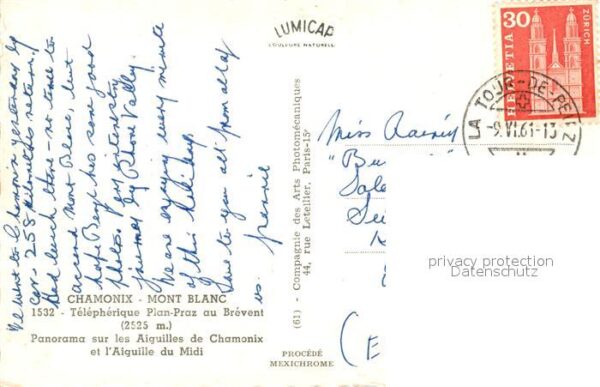 We went to Chamonix yesterday by
car - 258 kilometres return.
Had lunch there - no time to
ascend Mont Blanc, but
hope Benji has some good
photos. Very interesting
journey by Rhone Valley.
We are enjoying every minute
of this holiday.
Love to you all from all of
us. Jennie
CHAMONIX - MONT BLANC
1532 - Téléphérique Plan-Praz au Brévent
(2525 m.)
Panorama sur les Aiguilles de Chamonix
et l'Aiguille du Midi
LUMICAP
COULEURS NATURELLES
(61) - Compagnie des Arts Photomécaniques
44, rue Letellier, Paris-15e
PROCÉDÉ
MEXICHROME
Miss
"Bu
Sole
Su
(E
30
HELVETIA
ZÜRICH
LA TOUR-DE-PEILZ
-9.VI.61-13
privacy protection
Datenschutz